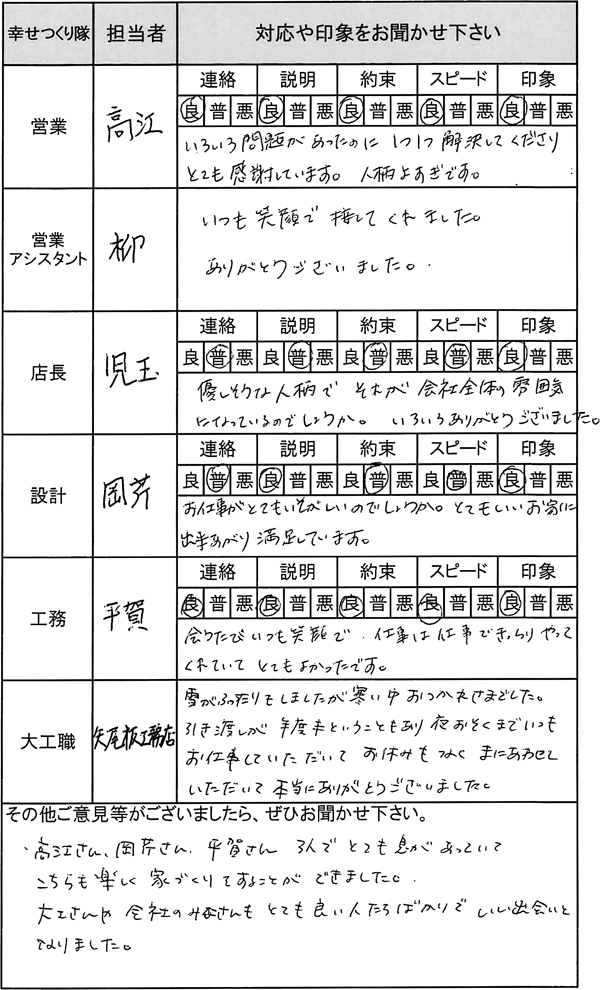 幸せつくり隊 担当者 対応や印象をお聞かせ下さい
連絡 説明 約束 スピード 印象
営業 高江 良 普 悪 良 普 悪 良 普 悪 良 普 悪 良 普 悪
いろいろ問題があったのに 1つ1つ 解決してくださり
とても感謝しています。 人柄よすぎです。
営業
アシスタント 柳
いつも笑顔で 接してくれました。
ありがとうございました。
連絡 説明 約束 スピード 印象
店長 児玉 良 普 悪 良 普 悪 良 普 悪 良 普 悪 良 普 悪
優しそうな人柄で それが 会社全体の雰囲気
になっているのでしょうか。 いろいろありがとうございました。
連絡 説明 約束 スピード 印象
設計 岡芹 良 普 悪 良 普 悪 良 普 悪 良 普 悪 良 普 悪
お仕事がとてもいそがしいのでしょうか。とてもいいお家に
出来あがり 満足しています。
連絡 説明 約束 スピード 印象
工務 平賀 良 普 悪 良 普 悪 良 普 悪 良 普 悪 良 普 悪
会うたびいつも笑顔で、仕事は仕事できっちりやって
くれていて とてもよかったです。
大工職 矢尾板工務店
雪がふったりもしましたが寒い中おつかれさまでした。
引き渡しが 年度末ということもあり 夜おそくまでいつも
お仕事していただいて お休みもなく まにあわせて
いただいて 本当にありがとうございました。
その他ご意見等がございましたら、ぜひお聞かせ下さい。
・高江さん、岡芹さん、平賀さん 3人で とても息があっていて
こちらも楽しく 家づくりすることが できました。
大工さんや 会社のみなさんも とても良い人たちばかりで いい出会いと
なりました。